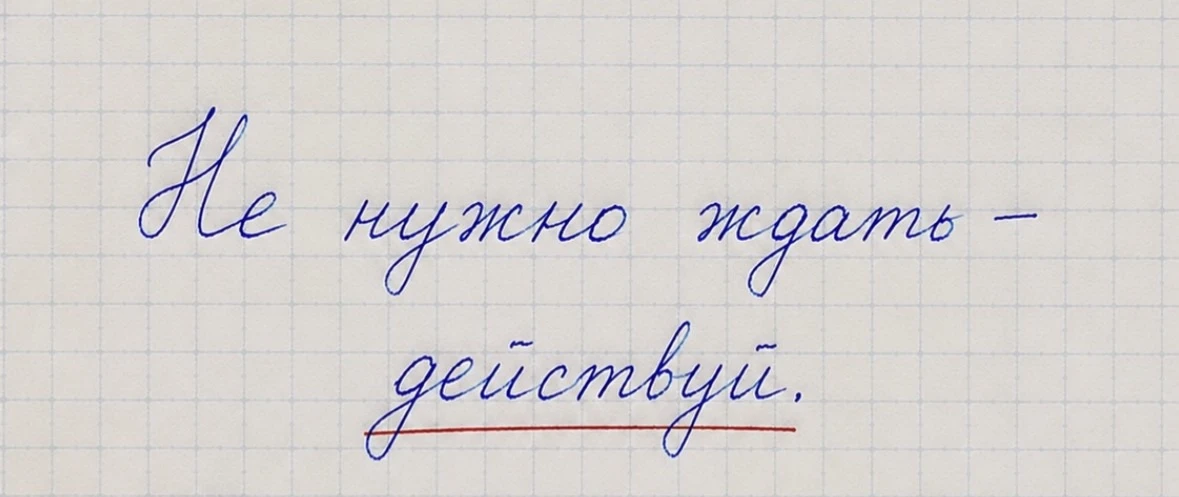 Не нужно ждать –
действуй.